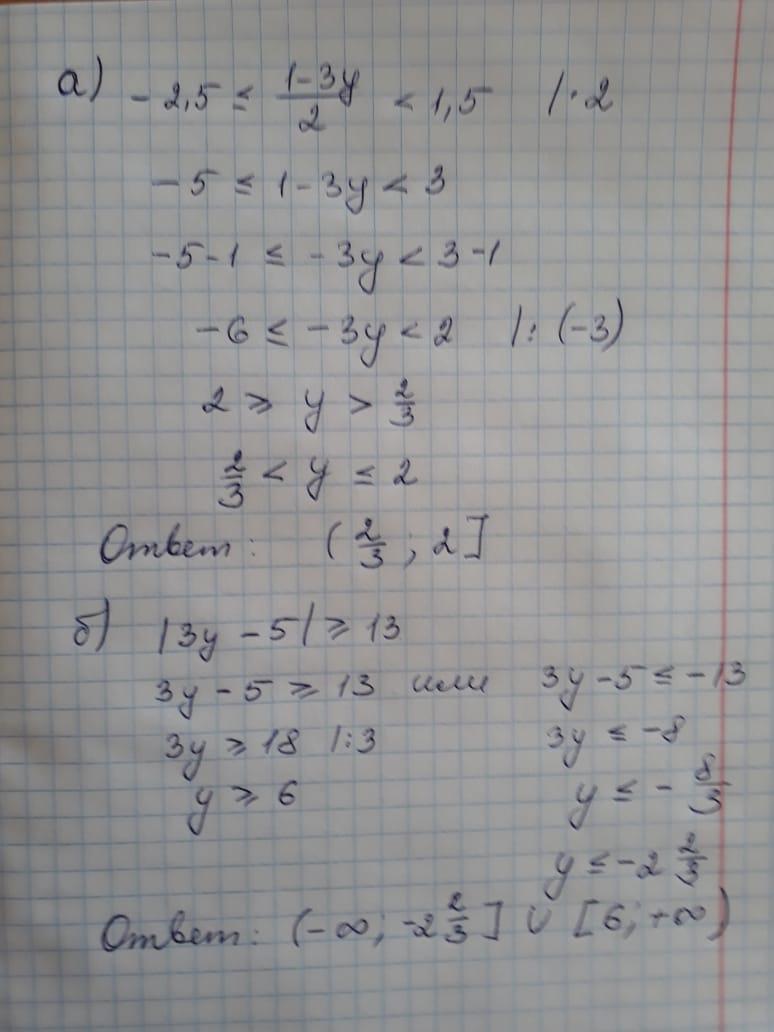 а) -2,5 ≤ (1-3y)/2 < 1,5 |·2
-5 ≤ 1-3y < 3
-5-1 ≤ -3y < 3-1
-6 ≤ -3y < 2 |: (-3)
2 ≥ y > 2/3
2/3 < y ≤ 2
Ответ: (2/3; 2]
б) |3y-5| ≥ 13
3y-5 ≥ 13 или 3y-5 ≤ -13
3y ≥ 18 |:3 3y ≤ -8
y ≥ 6 y ≤ -8/3
y ≤ -2 2/3
Ответ: (-∞; -2 2/3] ∪ [6; +∞)